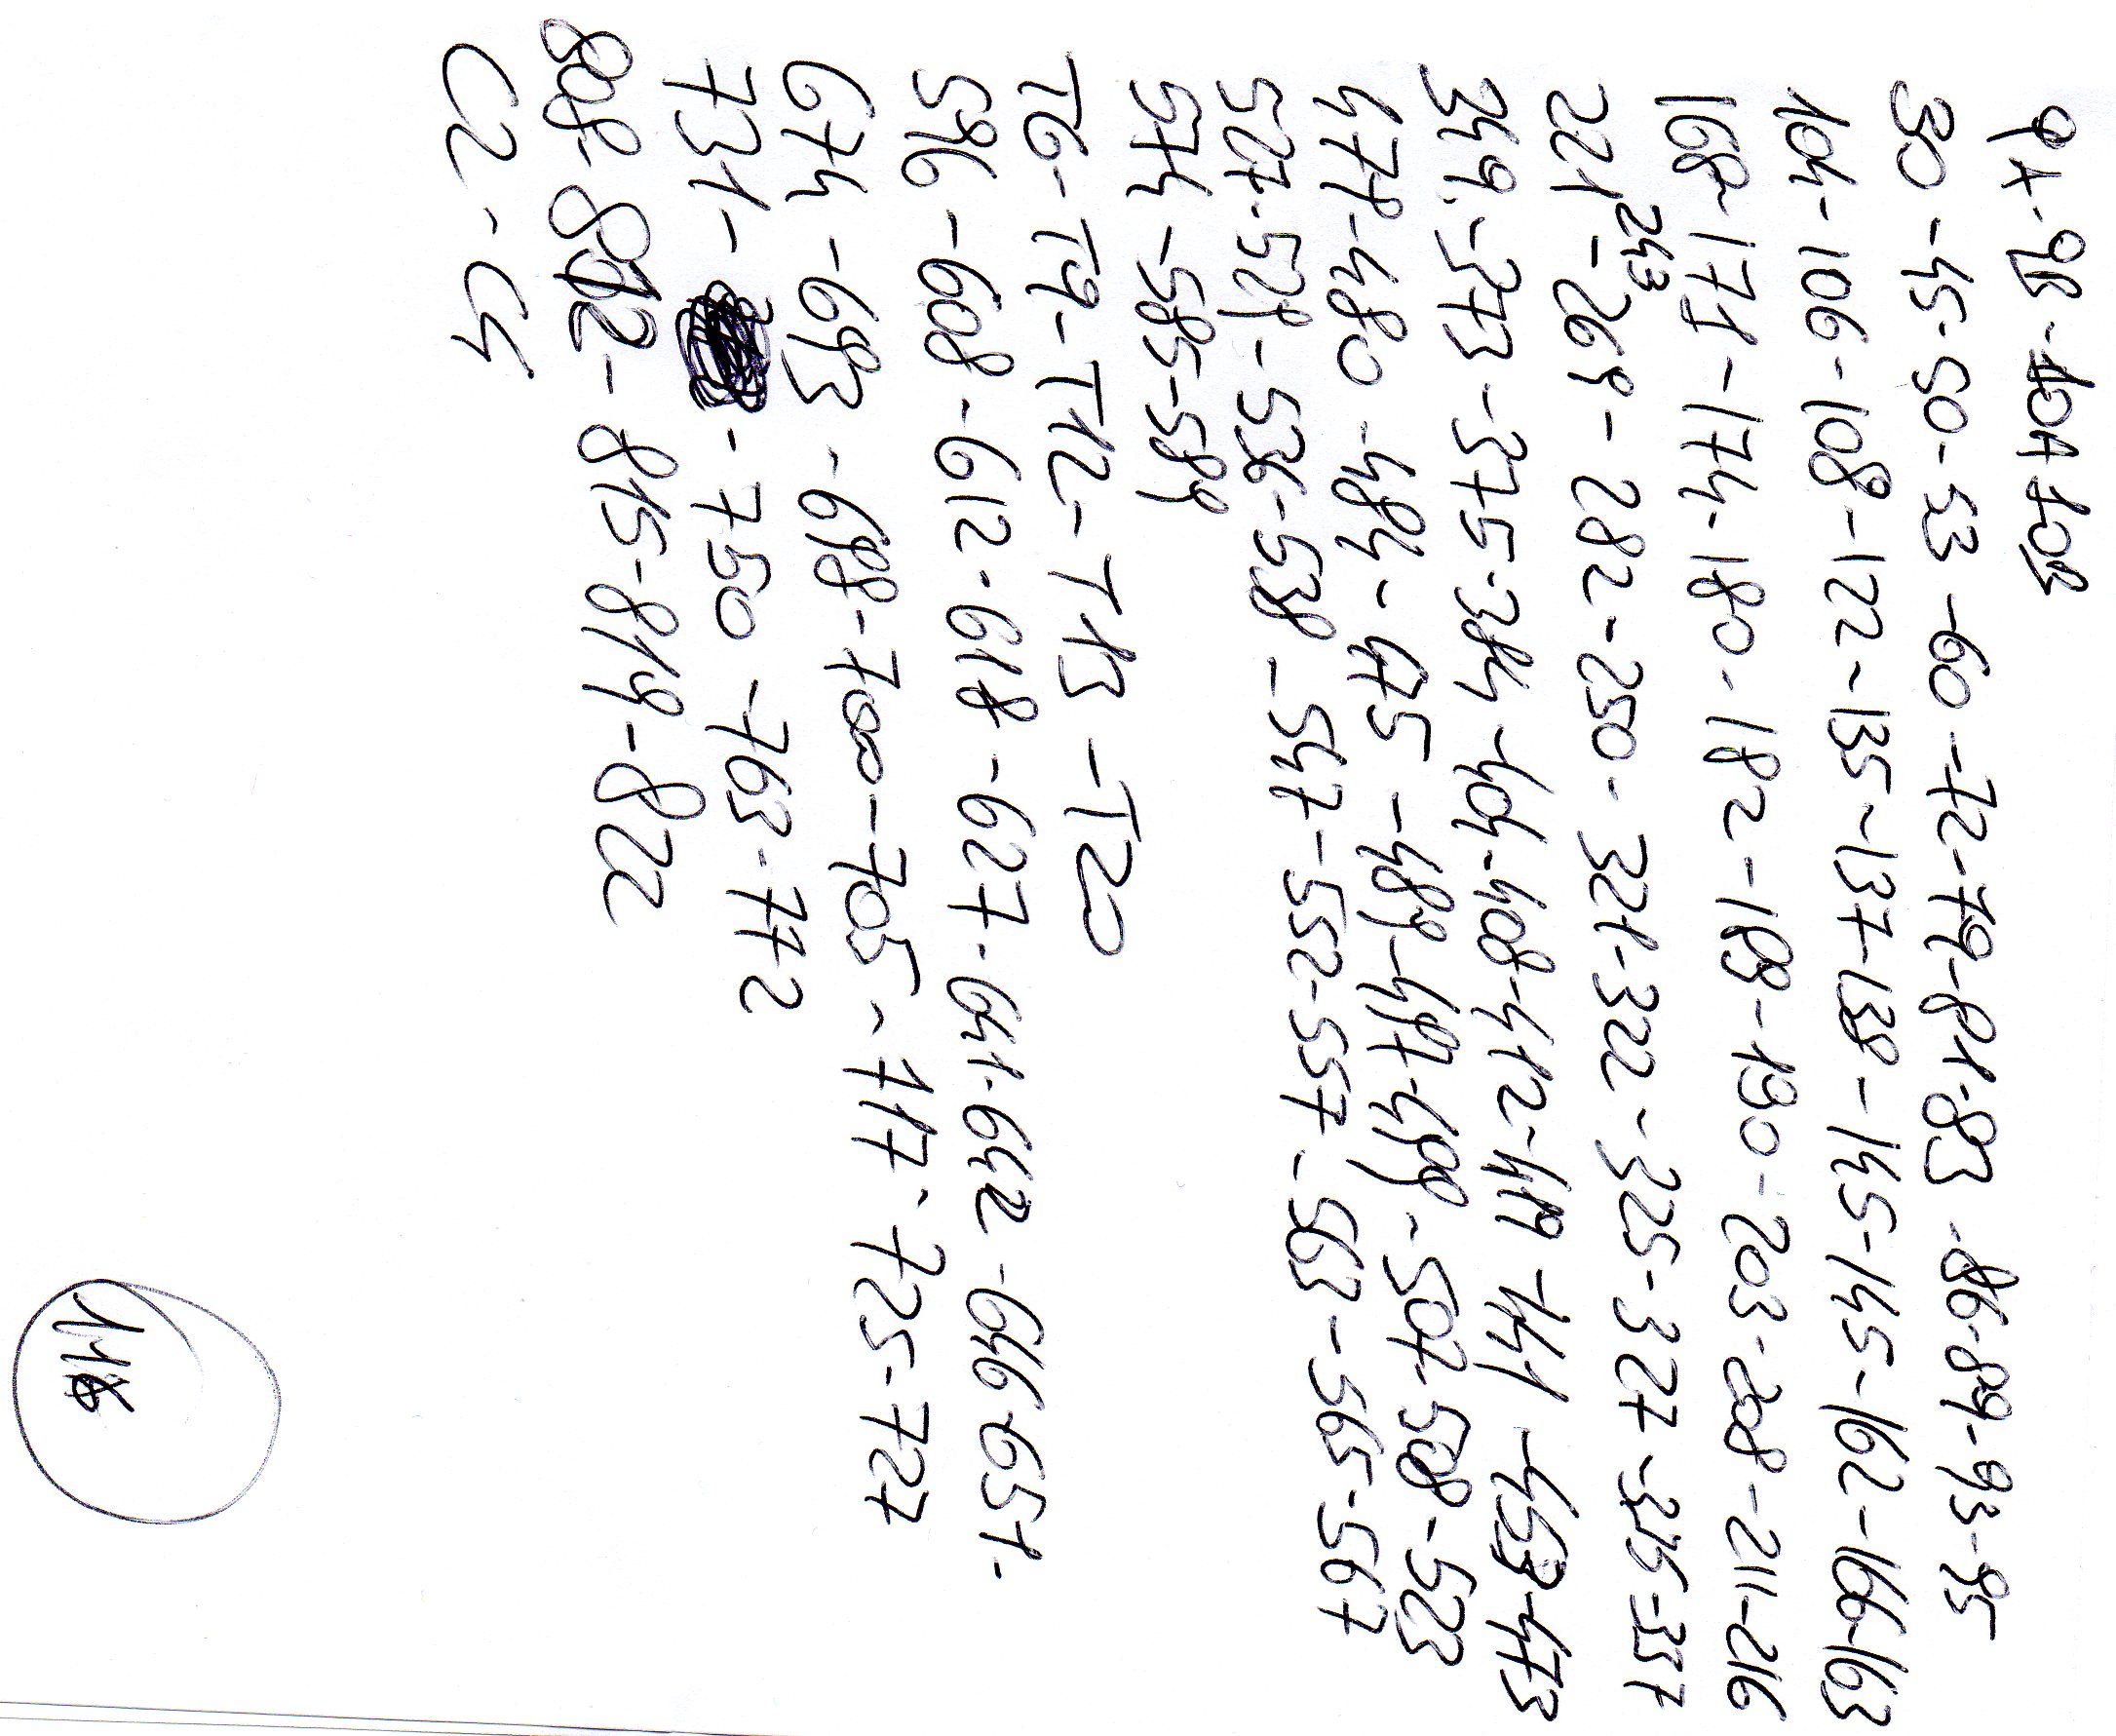 30-45-50-53-60-72-79-81-83-86-89-93-95
104-106-108-122-135-137-138-145-145-162-166-163
168-171-174-180-182-188-190-203-208-211-216
243
221-261-282-250-321-322-325-327-357
349-373-375-384-404-408-412-419-441-453-473
478-480-484-475-489-497-499-507-508-523
527-528-536-538-547-552-557-563-565-567
574-585-589
T6-T9-T12-T13-T20
596-608-612-618-627-641-642-646-651-
674-693-698-700-705-717-725-727
731-750-763-772
808-812-815-819-822
C2-C4
116